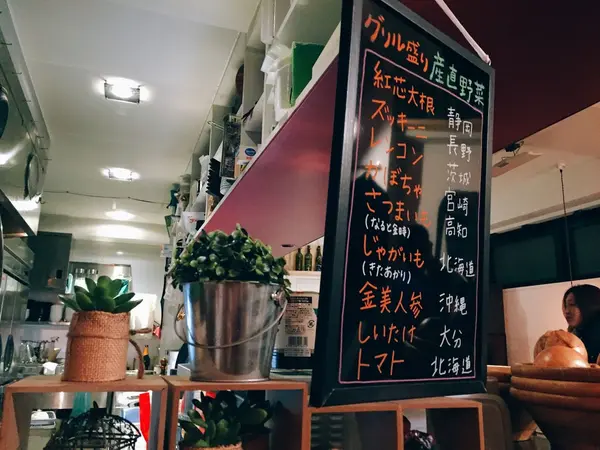 グリル盛り 産直野菜
紅芯大根 静岡
ズッキーニ 長野
レンコン 茨城
かぼちゃ 宮崎
さつまいも 高知
(なると金時)
じゃがいも 北海道
(きたあかり)
金美人参 沖縄
しいたけ 大分
トマト 北海道